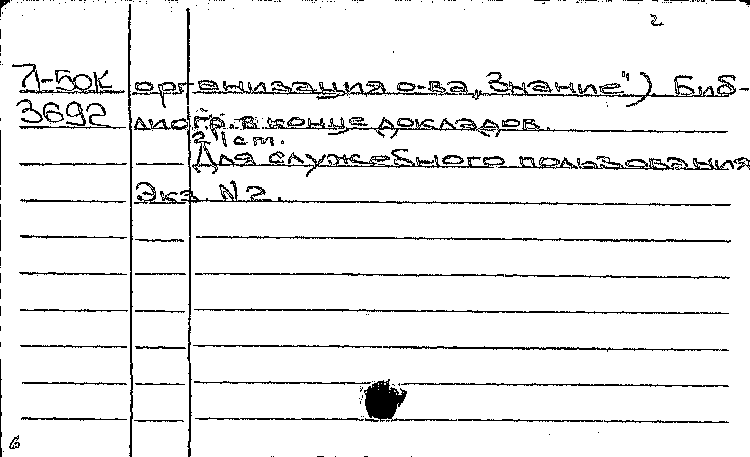 2
Л-50К организация о-ва „Знание") Биб-
3692 лиогр. в конце докладов.
21 ст.
Для служебного пользования
Экз. N 2.
6